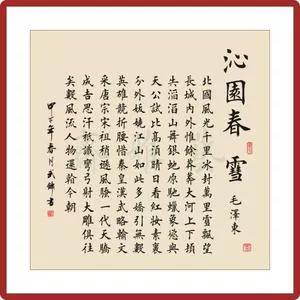 沁園春 雪
毛澤東
北國風光千里冰封萬里雪飄望
長城內外惟餘莽莽大河上下頓
失滔滔山舞銀蛇原馳蠟象慾與
天公試比高須晴日看紅妝素裹
分外妖嬈江山如此多嬌引無數
英雄競折腰惜秦皇漢武略輸文
采唐宗宋祖稍遜風騷一代天驕
成吉思汗祇識彎弓射大雕俱往
矣數風流人物還看今朝
甲午年春月武書